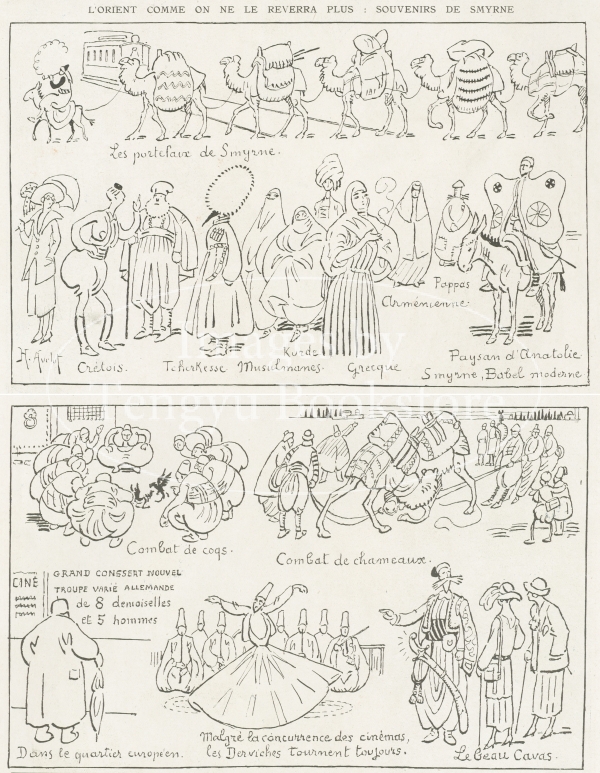 L'ORIENT COMME ON NE LE REVERRA PLUS : SOUVENIRS DE SMYRNE
Les portefaix de Smyrne.
H. Avelot
Crétois.
Tcherkesse
Musulmanes.
Kurde
Grecque
Arménienne
Pappas
Paysan d'Anatolie
Smyrne, Babel moderne
Images by
Pengyu Bookstore
Combat de coqs.
Combat de chameaux.
CINÉ
GRAND CONSSERT NOUVEL
TROUPE VARIÉ ALLEMANDE
de 8 demoiselles
et 5 hommes
Dans le quartier européen.
Malgré la concurrence des cinémas,
les Derviches tournent toujours.
Le Beau Cavas.